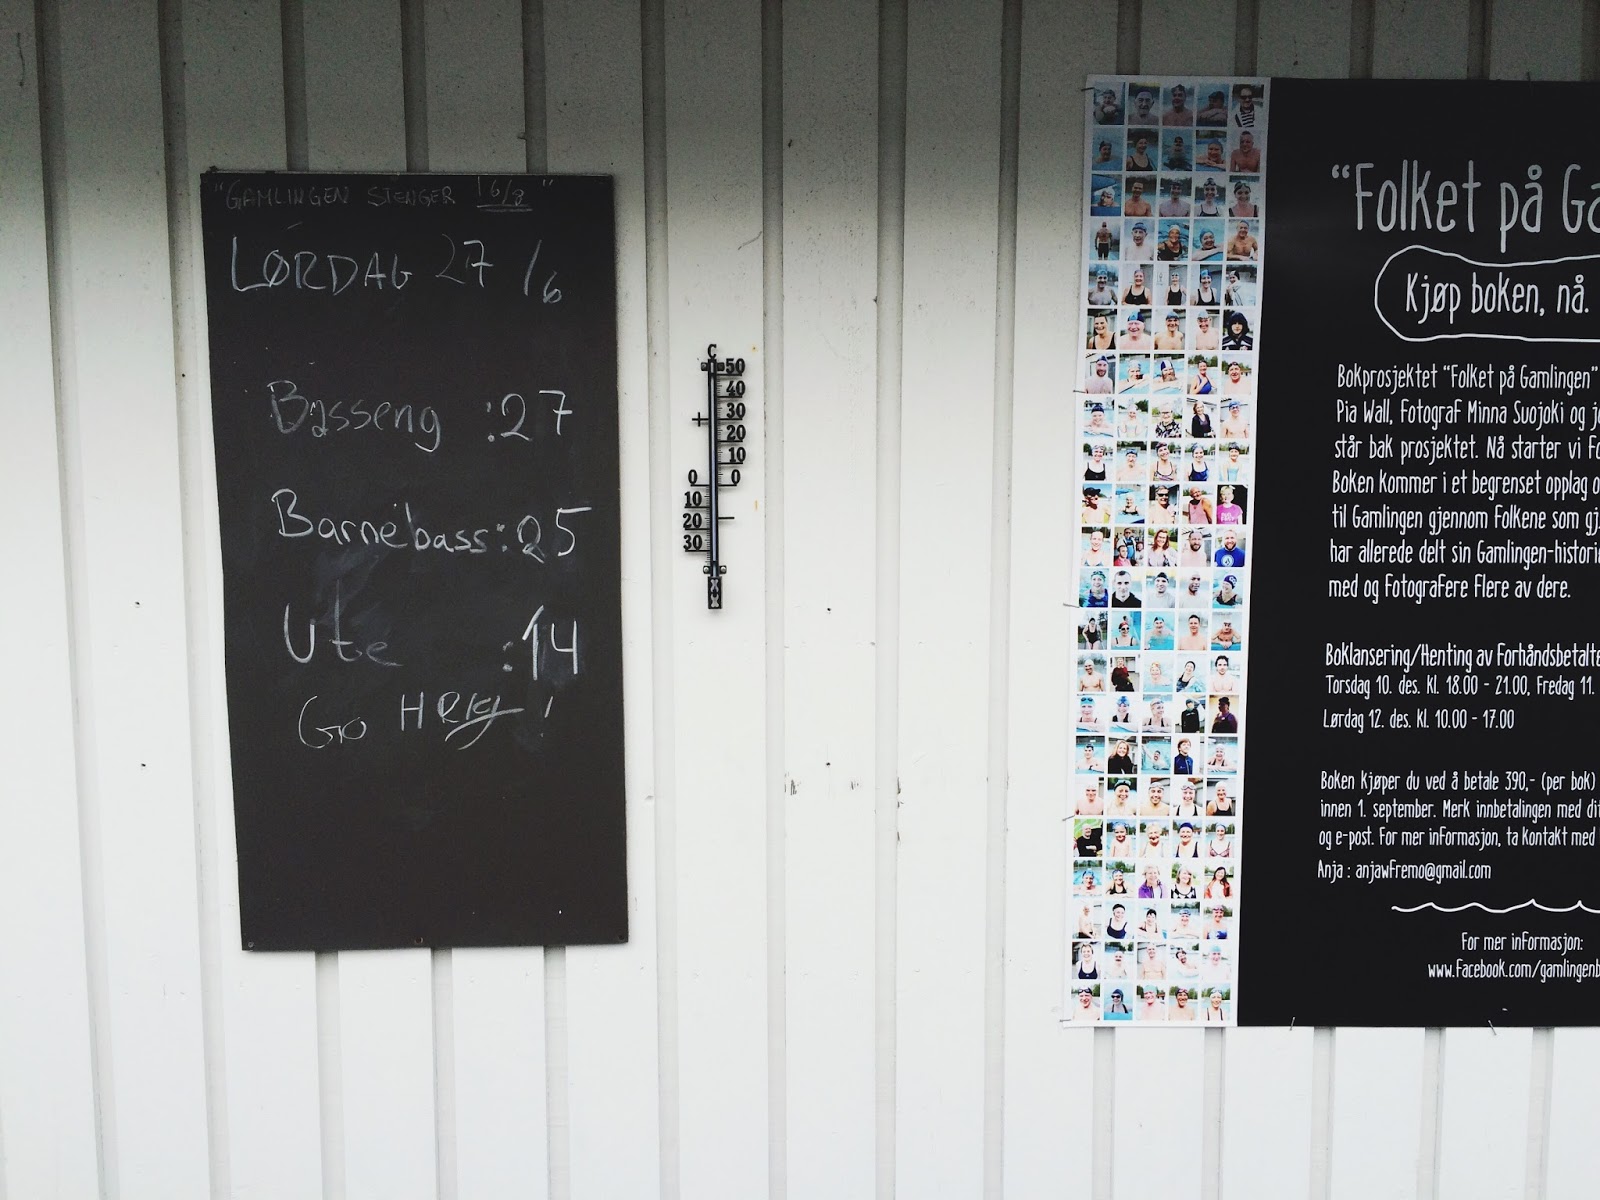 "GAMLINGEN STENGER 16/8"
LØRDAG 27/6
Basseng :27
Barnebass:25
Ute :14
Go
!
C
50
40
30
+
20
10
0 0
10
20
30
"Folket på Ga
Kjøp boken, nå.
Bokprosjektet "Folket på Gamlingen"
Pia Wall, Fotograf Minna Suojoki og j
står bak prosjektet. Nå starter vi Fo
Boken kommer i et begrenset opplag o
til Gamlingen gjennom Folkene som gj
har allerede delt sin Gamlingen-histori
med og Fotografere Flere av dere.
Boklansering/Henting av Forhåndsbetalte
Torsdag 10. des. kl. 18.00 - 21.00, Fredag 11.
Lørdag 12. des. kl. 10.00 - 17.00
Boken kjøper du ved å betale 390,- (per bok)
innen 1. september. Merk innbetalingen med dit
og e-post. For mer informasjon, ta kontakt med
Anja : anjawfremo@gmail.com
For mer informasjon:
www.facebook.com/gamlingenb